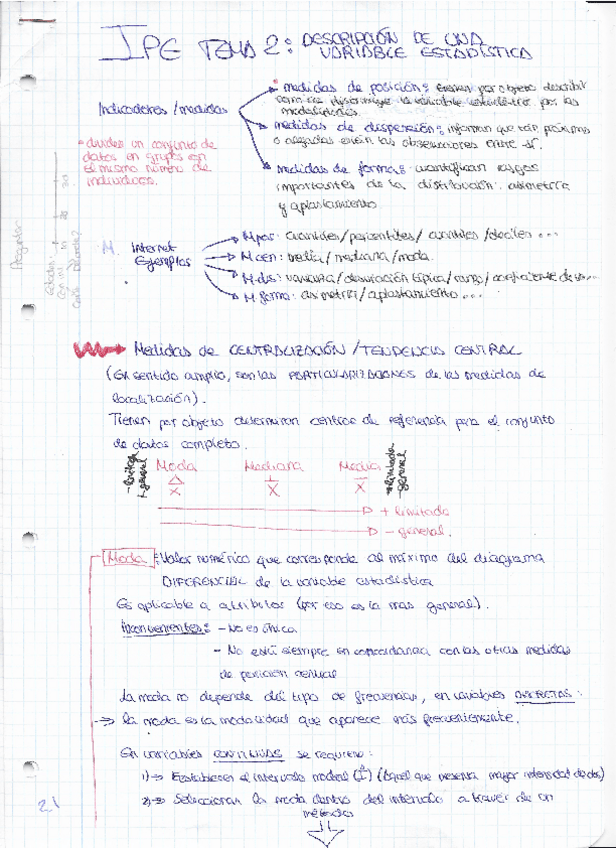 IPE TEMA 2: DESCRIPCIÓN DE UNA
VARIABLE ESTADÍSTICA
Indicadores/medidas
medidas de posición: tienen por objeto describir
como se distribuye la variable estadística por las
modalidades.
medidas de dispersión: informan que tan próximas
o alejadas están las observaciones entre sí.
medidas de forma: cuantifican rasgos
importantes de la distribución: asimetría
y aplastamiento
dividen un conjunto de
datos en grupos con
el mismo número de
individuos.
Internet
Ejemplos
M pos: cuantiles/percentiles/cuartiles/deciles...
M cen: media/mediana/moda.
M dis: varianza/desviación típica/rango/coeficiente de
M forma: asimetría/aplastamiento...
Medidas de CENTRALIZACIÓN/TENDENCIA CENTRAL
(En sentido amplio, son las PARTICULARIZACIONES de las medidas de
localización).
Tienen por objeto determinar centros de referencia para el conjunto
de datos completo.
Moda Mediana Media
+ limitado
- general.
Moda: Valor numérico que corresponde al máximo del diagrama
DIFERENCIAL de la variable estadística
Es aplicable a atributos (por eso es la más general).
Inconvenientes: - No es única
- No está siempre en concordancia con las otras medidas
de posición central
La moda no depende del tipo de frecuencias, en variables DISCRETAS:
→ la moda es la modalidad que aparece más frecuentemente.
En variables CONTINUAS se requiere:
1) → Establecer el intervalo modal (Aquel que presenta mayor intensidad de dos)
2) → Seleccionar la moda dentro del intervalo a través de un
método
21